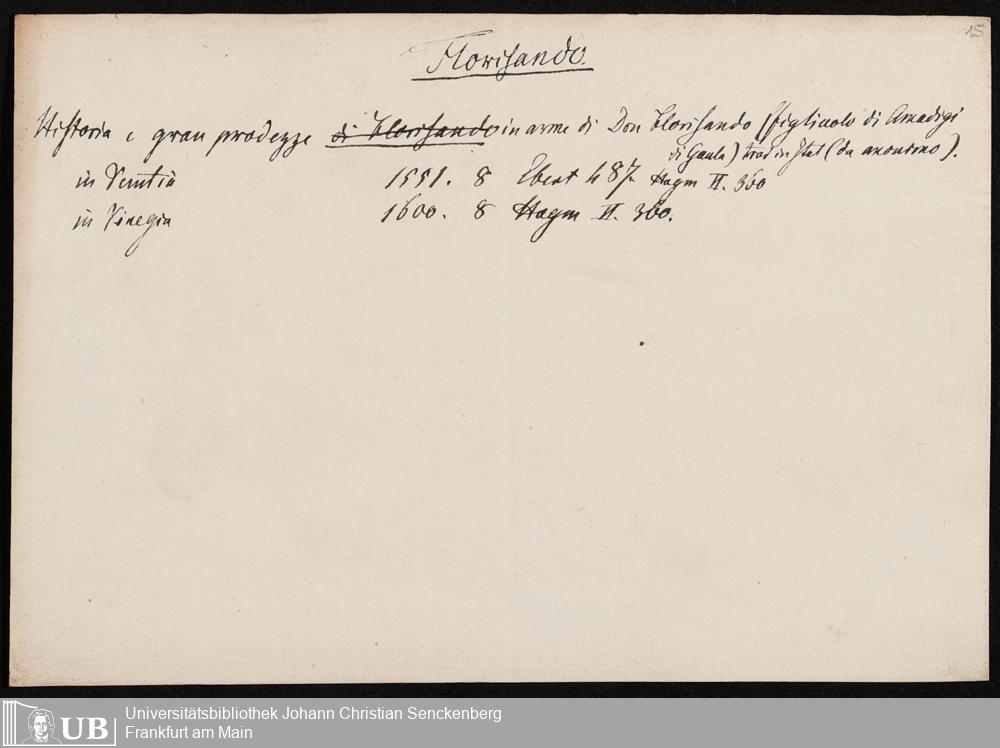 15
Florisando.
Historia e gran prodezze di Florisando in arme di Don Florisando (figliuolo di Amadigi
di Gaula) trad in Ital (da anonimo).
in Venetia 1551. 8 Ebert 487. Hagm II. 360
in Vinegia 1600. 8 Hagm II. 360.
UB
Universitätsbibliothek Johann Christian Senckenberg
Frankfurt am Main